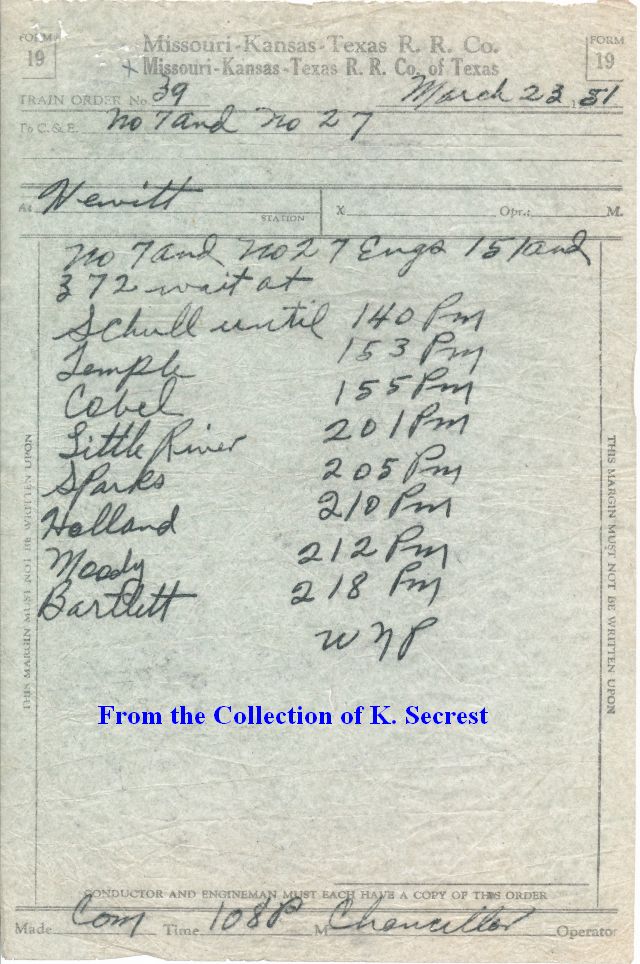 FORM 19
Missouri-Kansas-Texas R. R. Co.
FORM 19
x Missouri-Kansas-Texas R. R. Co. of Texas
TRAIN ORDER No. 39 March 23, 1951
To C. & E. No 7 and No 27
At Hewitt STATION X Opr.: M.
No 7 and No 27 Engs 151 and
372 wait at
Schull until 140 Pm
Temple 153 Pm
Cobel 155 Pm
Little River 201 Pm
Sparks 205 Pm
Holland 210 Pm
Moody 212 Pm
Bartlett 218 Pm
WNP
THIS MARGIN MUST NOT BE WRITTEN UPON
THIS MARGIN MUST NOT BE WRITTEN UPON
From the Collection of K. Secrest
CONDUCTOR AND ENGINEMAN MUST EACH HAVE A COPY OF THIS ORDER
Made Com Time 108P M Chancellor Operator